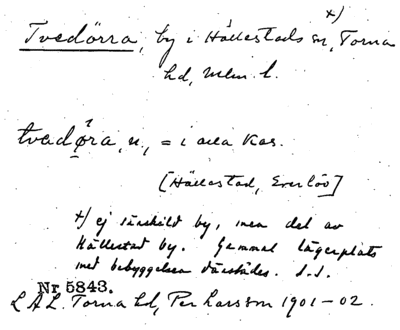 x)
Tvedörra, by i Hällestads sn, Torna
hd, Mlm. l.
tvadøra, n., = i alla kas.
[Hällestad, Everlöv]
x) ej särskild by, men del av
Hällestad by. Gammal lägerplats
med bebyggelsen därstädes. S.S.
Nr 5843.
L A L. Torna hd, Per Larsson 1901-02.